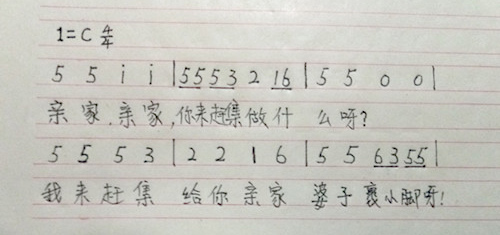 1=C 4/4
5 5 i i | 55 53 2 16 | 5 5 0 0 |
亲家,亲家,你来赶集做什么呀?
5 5 5 3 | 2 2 1 6 | 5 5 63 55 |
我来赶集 给你亲家 婆子裹小脚呀!